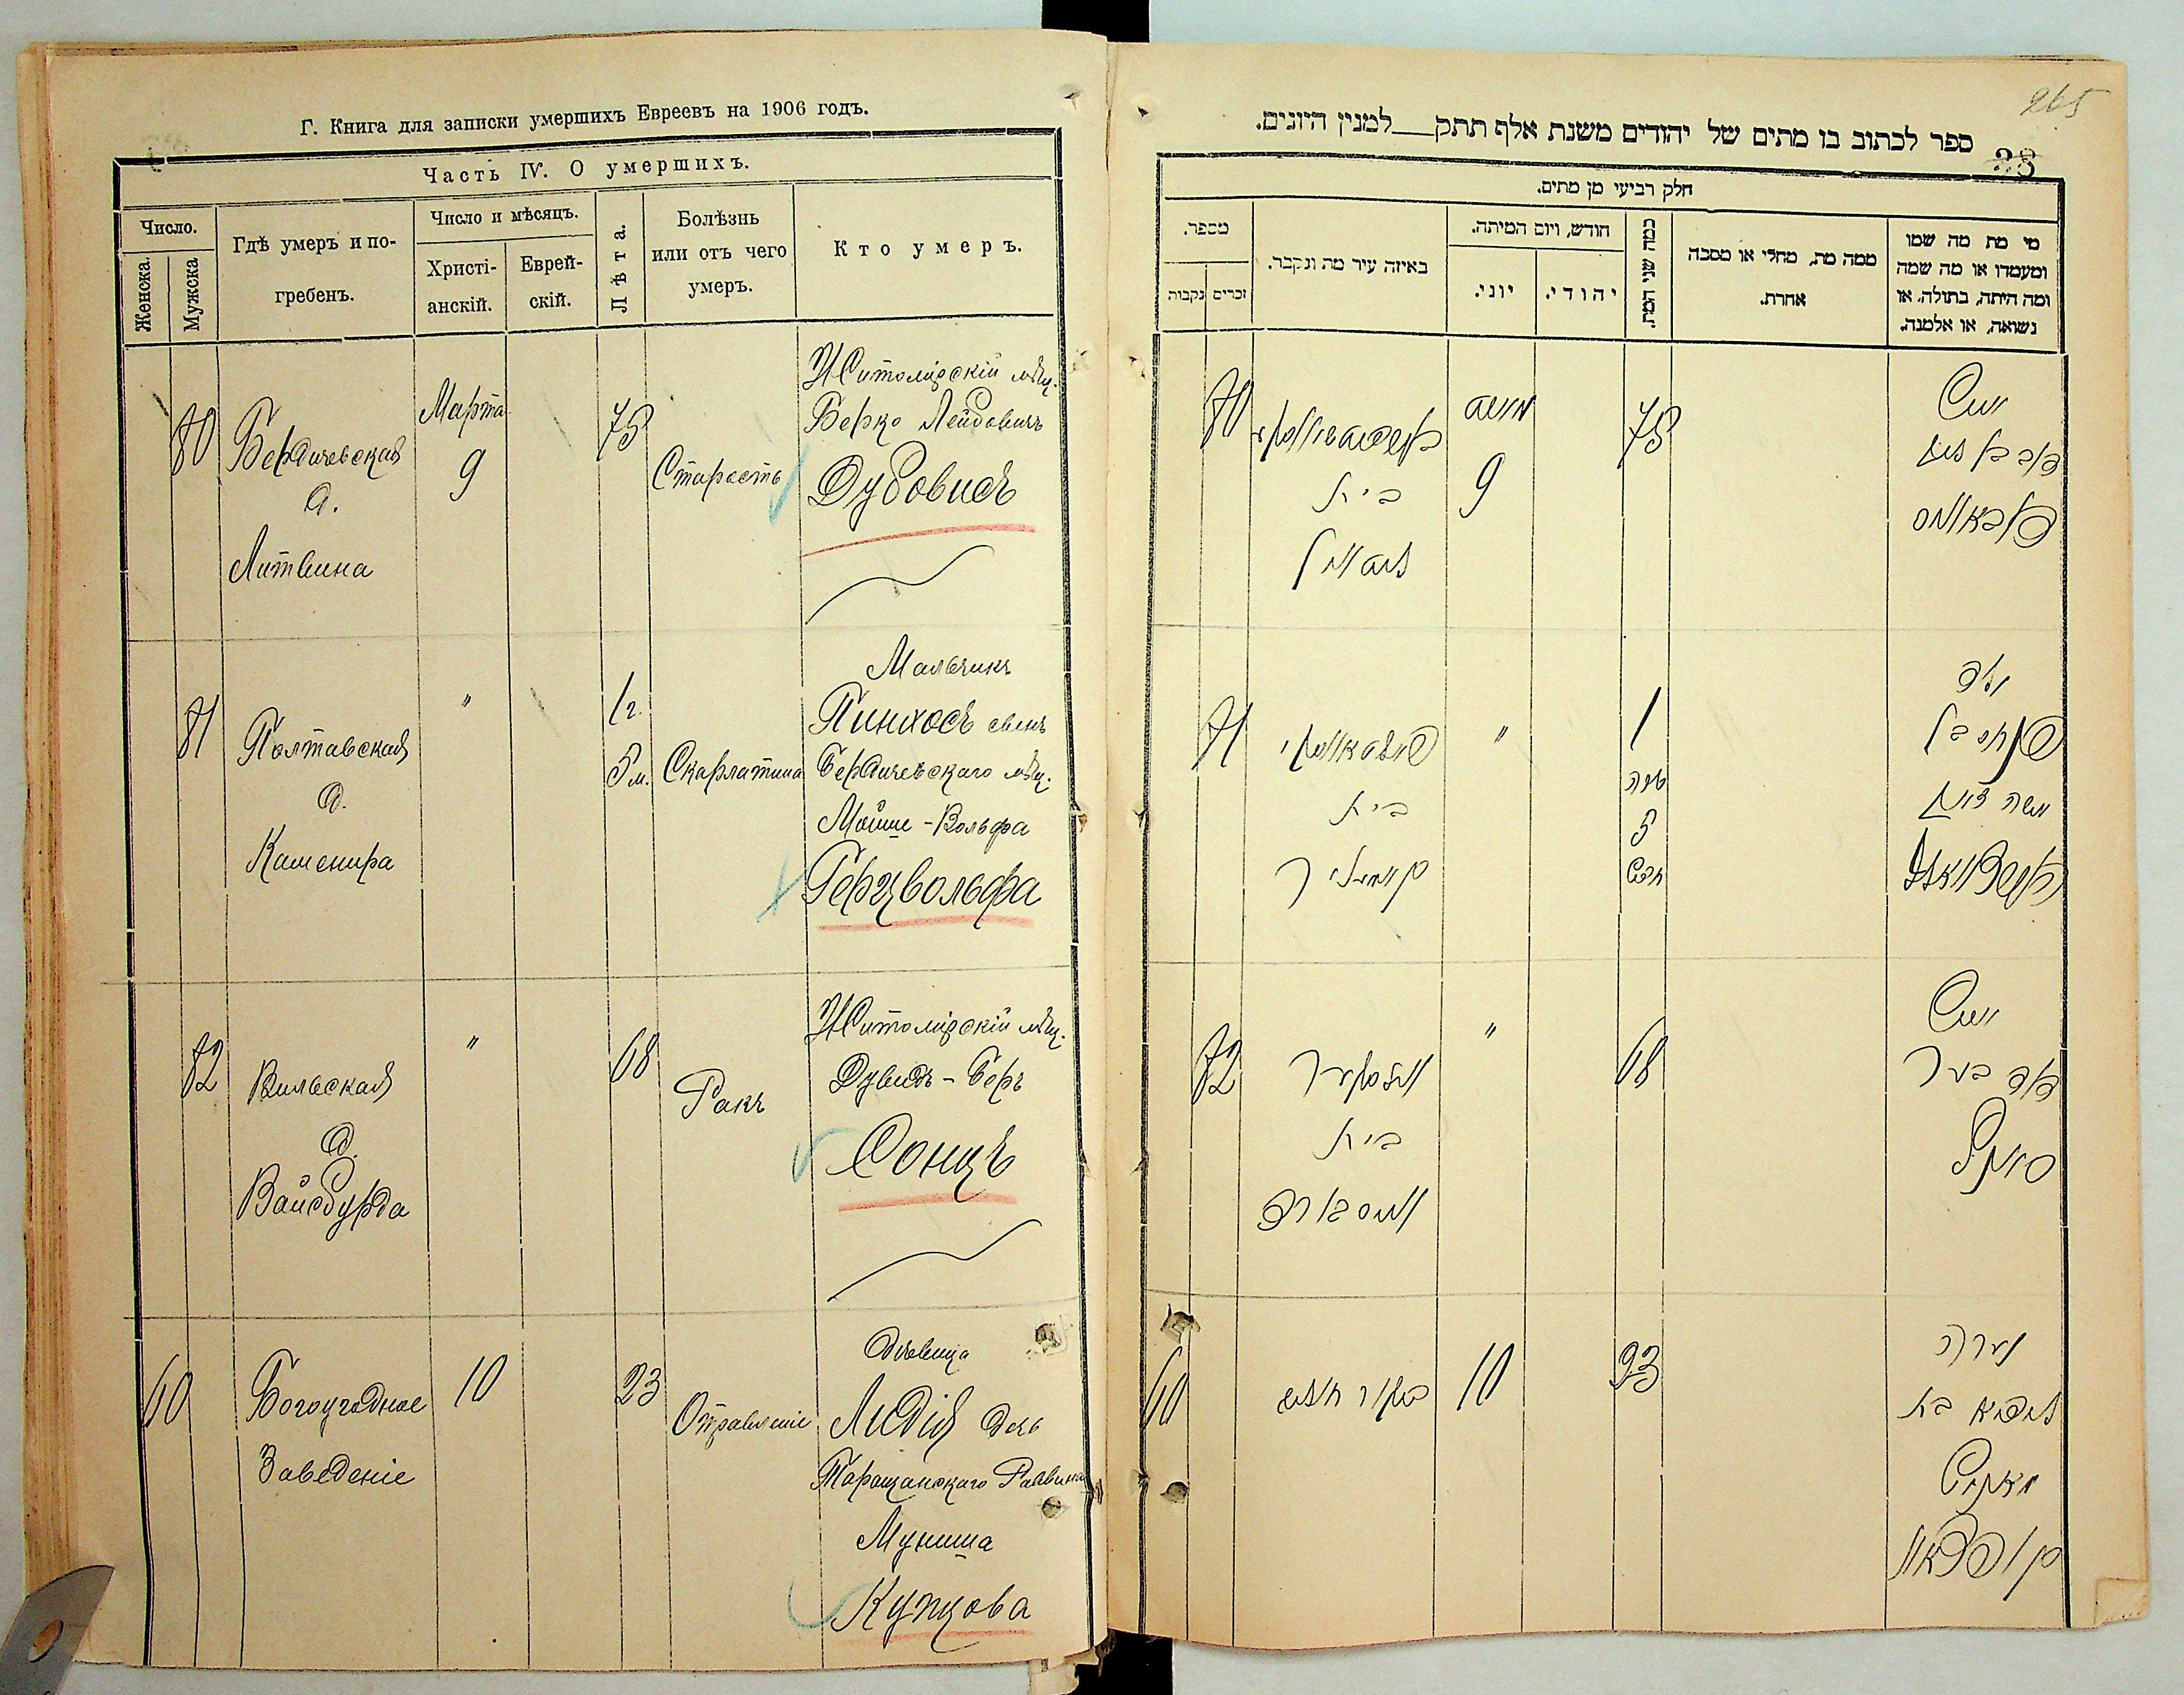 Г. Книга для записки умершихъ Евреевъ на 1906 годъ.
Часть IV. О умершихъ.
Число.
Женска.
Мужска
Гдѣ умеръ и по-
гребенъ.
Число и мѣсяцъ.
Христі-
анскій.
Еврей-
скій.
Лѣта.
Болѣзнь
или отъ чего
умеръ.
Кто умеръ.
80
Бердичевская
д.
Литвина
Марта
9
75
Старость
Житомірскій мѣщ.
Берко Лейбовичъ
Дубовисъ
81
Полтавская
д.
Кашенира
"
1 г.
5 м.
Скарлатина
Мальчикъ
Пинхосъ сынъ
Бердичевскаго мѣщ.
Мойше-Вольфа
Герцвольфа
82
Вильская
д.
Вайсбурда
"
68
Ракъ
Житомірскій мѣщ.
Дувидъ-Беръ
Сонцъ
60
Богоугодное
Заведеніе
10
23
Отравленіе
Дѣвица
Лидія дочь
Таращанскаго Раввина
Муниша
Купцова
265
28
ספר לכתוב בו מתים של יהודים משנת אלף תתק למנין היונים.
חלק רביעי מן מתים.
מספר.
זכרים
נקבות
באיזה עיר מת ונקבר.
חודש, ויום המיתה.
יוני.
יהודי.
כמה שני המת.
ממה מת, מחלי או מסבה
אחרת.
מי מת מה שמו
ומעמדו או מה שמה
ומה היתה, בתולה, או
נשואה, או אלמנה.
80
בית
9
75
דוב בן
81
בית
"
1
שנה
5
חדש
ילד
פנחס בן
משה וואלף
82
בית
ווייסבורד
"
68
דוד בער
סאנץ
60
ביקור חולים
10
23
נערה
לידיא בת